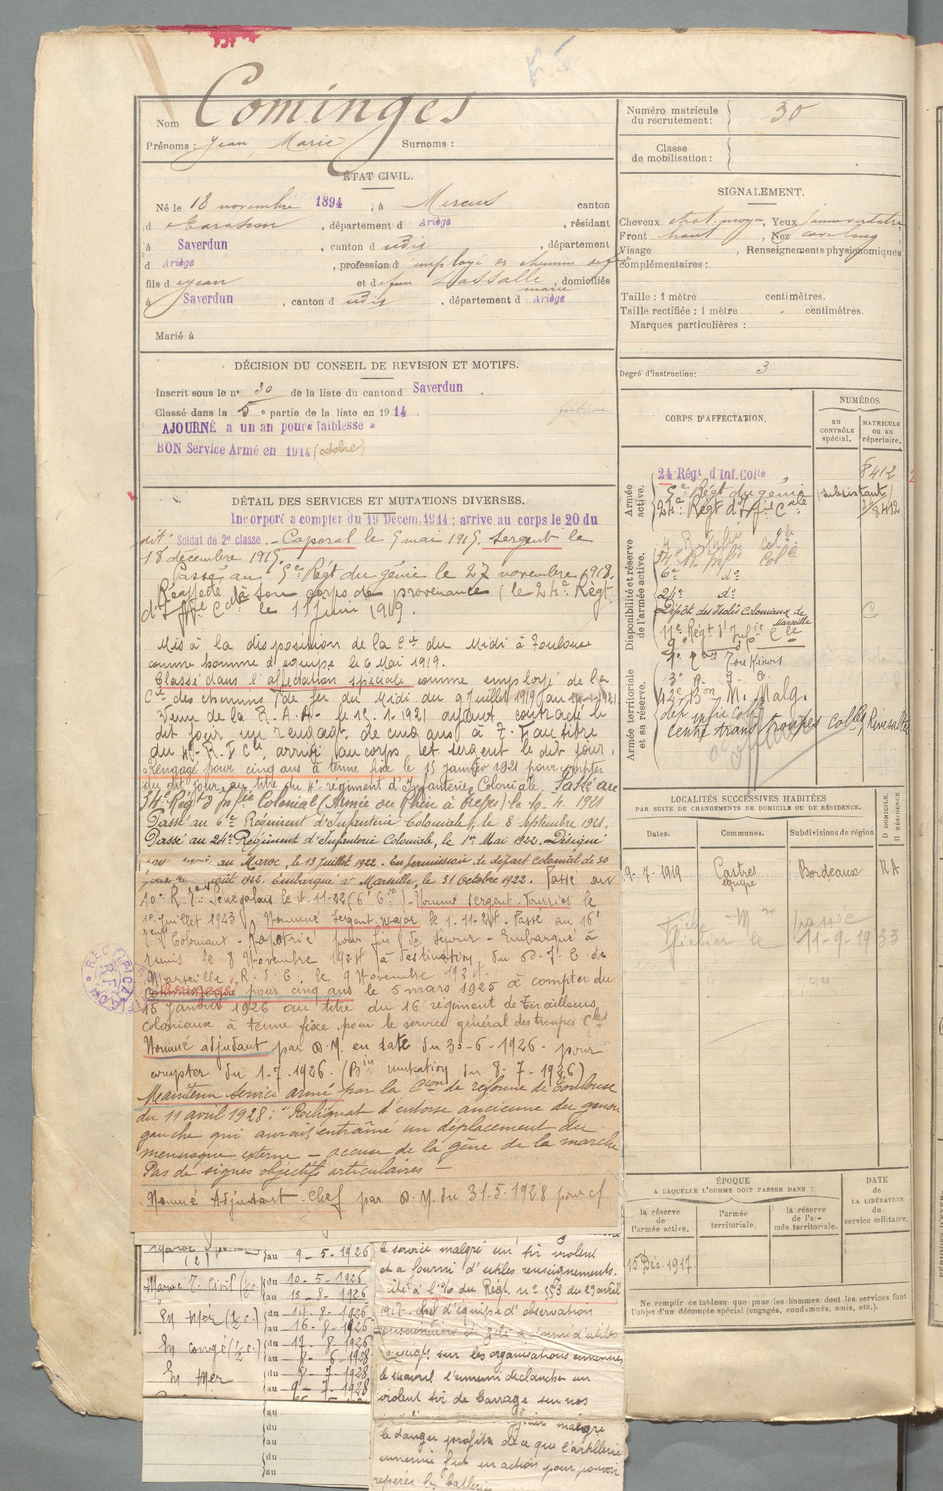 F 5
Nom Cominges
Prénoms : Jean Marie Surnoms :
ÉTAT CIVIL.
Né le 18 novembre 1894, à Mercus canton
d Tarascon, département d Ariège, résidant
à Saverdun, canton d udis, département
d Ariège, profession d employé de chemin de fer
fils d Jean et de feu Lassalle Marie, domiciliés
à Saverdun, canton d udis, département d Ariège
Marié à
DÉCISION DU CONSEIL DE REVISION ET MOTIFS.
Inscrit sous le n° 30 de la liste du canton d Saverdun.
Classé dans la 5e partie de la liste en 1914.
AJOURNÉ a un an pour « faiblesse »
BON Service Armé en 1914 (octobre)
DÉTAIL DES SERVICES ET MUTATIONS DIVERSES.
Incorporé a compter du 19 Décem. 1914 ; arrivé au corps le 20 du
dit Soldat de 2e classe. - Caporal le 5 mai 1915. Sergent le
18 décembre 1915.
Passé au 5e Régt du génie le 27 novembre 1918.
Réaffecté à son corps de provenance (le 24e Régt
d'Iffie Cale le 11 Juin 1919.
Mis à la disposition de la Cie du Midi à Toulouse
comme homme d'équipe le 6 Mai 1919.
Classé dans l'affectation spéciale comme employé de la
Cie des chemins de fer du Midi du 9 Juillet 1919 au
Venu de la R. A. A. le 15.1.1921 ayant contracté le
dit jour un rengagt de cinq ans à T. F. au titre
du 4e R. I. Cle arrivé au corps et sergent le dit jour.
Rengagé pour cinq ans à terme fixe le 15 Janvier 1921 pour compter
du dit jour au titre du 4e régiment d'Infanterie Coloniale. Passé au
34e Régt d'Infrie Colonial (Armée du Rhin à Trèves) le 19.4.1921
Passé au 6e Régiment d'Infanterie Coloniale, le 8 Septembre 1921.
Passé au 24e Régiment d'Infanterie Coloniale, le 1er Mai 1922. Désigné
au Maroc, le 13 Juillet 1922. En permission de départ colonial de 30
août 1922. Embarqué à Marseille, le 31 Octobre 1922. Passé au
10e R. T. Sénégalais le 4.11.22 (6e Cie). Nommé sergent fourrier le
1er Juillet 1923. Nommé sergent major le 1.11.24. Passé au 16e
Régt Coloniaux. Rapatrié pour fin de séjour. Embarqué à
Tunis le 8 Novembre 1924 à destination du D. I. C. de
Marseille, R. D. C. le 9 Novembre 1924.
Rengagé pour cinq ans le 5 mars 1925 à compter du
15 Janvier 1926 au titre du 16e régiment de Tirailleurs
coloniaux à terme fixe pour le service général des troupes Cles
Nommé adjudant par D.M. en date du 30-6-1926. pour
compter du 1-7-1926. (Bin mutation du 8-7-1926)
Maintenu service armé par la Con de réforme de Toulouse
du 11 avril 1928 : "Reliquat d'entorse ancienne du genou
gauche qui aurait entraîné un déplacement du
ménisque externe - accuse de la gêne de la marche
Pas de signes objectifs articulaires -
Nommé Adjudant-Chef par D.M. du 31.5.1928 pour cf
au 9-5-1926
Maroc T. Civil du 10-5-1926
au 13-8-1926
En mer (½ c.) du 14-8-1926
au 16-8-1926
En congé (½ c.) du 17-8-1926
au 8-6-1928
En mer du 8-7-1928
au 9-7-1928
au
du
au
du
au
le service malgré un tir violent
et a fourni d'utiles renseignements.
Cité à l'o/o du Régt. n° 153 du 29 avril
1917. Chef d'équipe d'observation
d'utiles
renseigts sur les organisations ennemies
le 14 avril l'ennemi déclancha un
violent tir de barrage sur nos
malgré
le danger profita de ce que l'artillerie
ennemie fut en action pour pouvoir
repérer les batteries
Numéro matricule du recrutement : 30
Classe de mobilisation :
SIGNALEMENT.
Cheveux chat. moyen, Yeux jaune verdâtre
Front haut, Nez cave long
Visage, Renseignements physionomiques
complémentaires :
Taille : 1 mètre centimètres.
Taille rectifiée : 1 mètre centimètres.
Marques particulières :
Degré d'instruction : 3
CORPS D'AFFECTATION.
NUMÉROS
AU CONTRÔLE spécial.
MATRICULE OU AU répertoire.
Armée active.
24 Régt d'Inf. Colle 8412
5e Régt du génie (subsistant)
24e Régt d'Iffie Cale 8412
Disponibilité et réserve de l'armée active.
4e R. Infie Colle
34e R. Infie Colle
6e do
24e do
Dépôt des Isolés Coloniaux de Marseille
11e Régt d'Infie Cle C
Armée territoriale et sa réserve.
42e Bon M. Malg.
dep infie Colle
Centre trans troupes colles Rivesaltes
LOCALITÉS SUCCESSIVES HABITÉES
PAR SUITE DE CHANGEMENTS DE DOMICILE OU DE RÉSIDENCE.
Dates. Communes. Subdivisions de région D DOMICILE. R RÉSIDENCE
9-7-1919 Castres Bordeaux RA
passée
fichier le 11-9-1933
ÉPOQUE
A LAQUELLE L'HOMME DOIT PASSER DANS :
la réserve de l'armée active.
l'armée territoriale.
la réserve de l'armée territoriale.
DATE de LA LIBÉRATION du service militaire.
15 Déc. 1917
Ne remplir ce tableau que pour les hommes dont les services font
l'objet d'un décompte spécial (engagés, condamnés, omis, etc.).